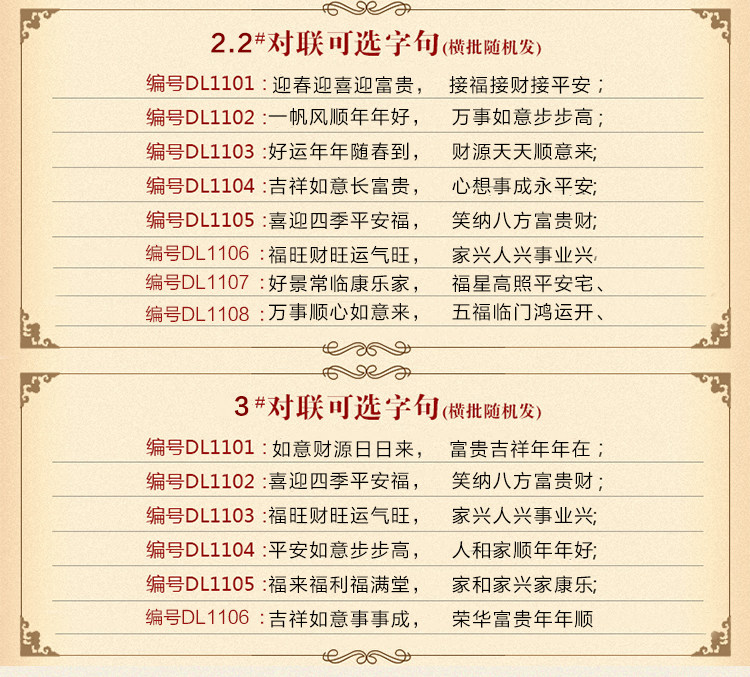 2.2#对联可选字句(横批随机发)
编号DL1101：迎春迎喜迎富贵， 接福接财接平安；
编号DL1102：一帆风顺年年好， 万事如意步步高；
编号DL1103：好运年年随春到， 财源天天顺意来;
编号DL1104：吉祥如意长富贵， 心想事成永平安;
编号DL1105：喜迎四季平安福， 笑纳八方富贵财;
编号DL1106：福旺财旺运气旺， 家兴人兴事业兴,
编号DL1107：好景常临康乐家， 福星高照平安宅、
编号DL1108：万事顺心如意来， 五福临门鸿运开、
3#对联可选字句(横批随机发)
编号DL1101：如意财源日日来， 富贵吉祥年年在；
编号DL1102：喜迎四季平安福， 笑纳八方富贵财；
编号DL1103：福旺财旺运气旺， 家兴人兴事业兴;
编号DL1104：平安如意步步高， 人和家顺年年好;
编号DL1105：福来福利福满堂， 家和家兴家康乐;
编号DL1106：吉祥如意事事成， 荣华富贵年年顺